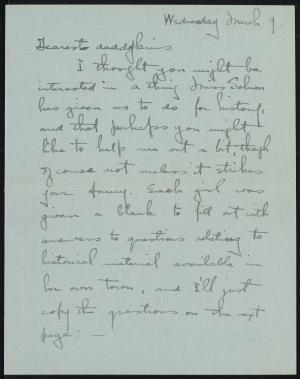 Wednesday March 9.
Dearest daddykins
I thought you might be
interested in a thing Miss Salmon
has given us to do for history,
and that perhaps you might
like to help me out a bit, though
of course not unless it strikes
your fancy. Each girl was
given a blank to fill out with
answers to questions relating to
historical material available in
her own town, and I'll just
copy the questions on the next
page: —